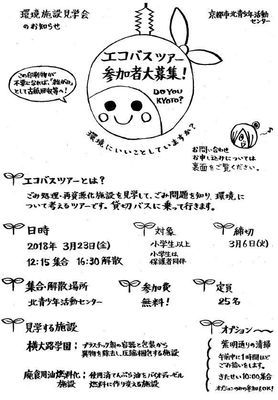 環境施設見学会
のお知らせ
京都市北青少年活動
センター
エコバスツアー
参加者大募集!
DO YOU
KYOTO?
この印刷物が
不要になれば「雑がみ」
として古紙回収等へ!
環境にいいことしていますか?
お問い合わせ
お申し込みについては
裏面をご覧ください。
エコバスツアーとは?
ごみ処理・再資源化施設を見学して、ごみ問題を知り、環境に
ついて考えるツアーです。貸切バスに乗って行きます。
日時
2018年 3月23日(金)
12:15 集合 16:30 解散
対象
小学生以上
小学生は
保護者同伴
締切
3月6日(火)
集合・解散場所
北青少年活動センター
参加費
無料!
定員
25名
見学する施設
横大路学園:プラスチック製の容器と包装から
異物を除去し、圧縮梱包する施設
廃食用油燃料化
施設
:使用済てんぷら油をバイオディーゼル
燃料に作り変える施設
オプション
紫明通りの清掃
午前中に1時間ほど
ごみ拾いをします。
きたせい 10:00集合
オプションのみの参加もOK!